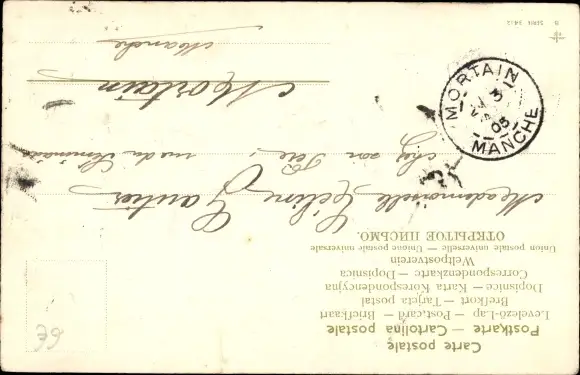 Carte postale
Postkarte — Cartolina postale
Levelező-Lap — Post card — Briefkaart
Brefkort — Tarjeta postal
Dopisnice — Karta Korespondencyjna
Correspondenzkarte — Dopisnica
Weltpostverein
Union postale universelle — Unione postale universale
ОТКРЫТОЕ ПИСЬМО.
Mademoiselle Céline Gautier
chez son Père, rue du
Mortain
Manche
MORTAIN
3
05
MANCHE
6€